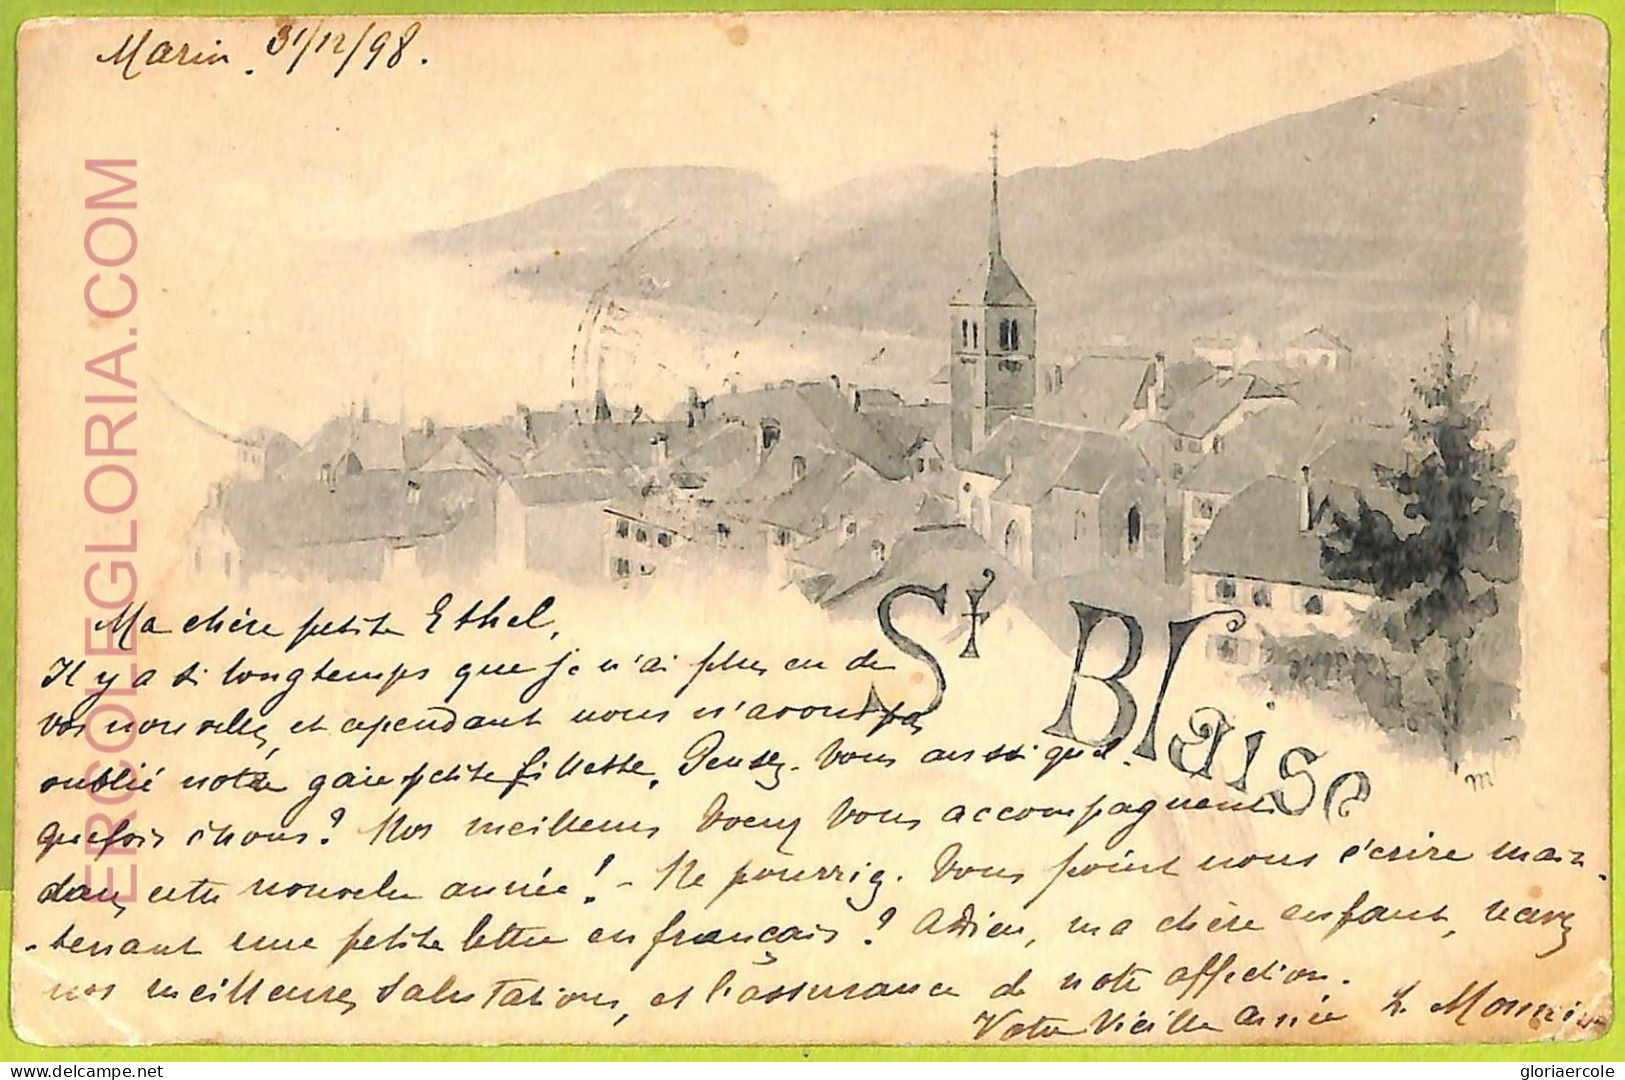 Marin. 31/12/98.
ERCOLEGLORIA.COM
St Blaise
m
Ma chère petite Ethel,
Il y a si longtemps que je n'ai plus eu de
vos nouvelles, et cependant nous n'avons pas
oublié notre gaie petite fillette. Pensez-vous aussi quel-
quefois à nous? Nos meilleurs voeux vous accompagnent
dans cette nouvelle année! - Ne pourriez-vous point nous écrire main-
-tenant une petite lettre en français? Adieu, ma chère enfant, recevez
nos meilleures salutations, et l'assurance de notre affection.
Votre vieille amie L.
delcampe.net
gloriaercole